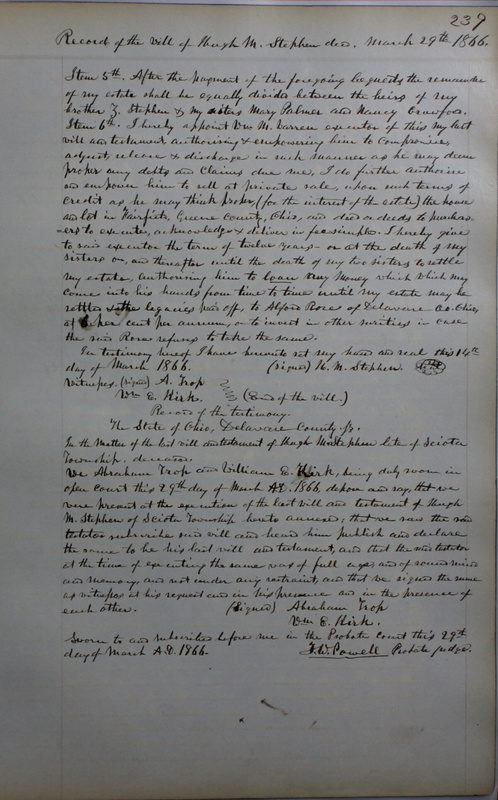 239
Record of the will of Hugh M. Stephen dec. March 29th 1866.
Item 5th. After the payment of the foregoing bequests the remainder
of my estate shall be equally divided between the heirs of my
brother Z. Stephen & my sisters Mary Palmer and Nancy Crawford.
Item 6th. I hereby appoint Wm M. Warren executor of this my last
will and testament, authorising & empowering him to compromise,
adjust, release & discharge in such manner as he may deem
proper any debts and claims due me, I do further authorise
and empower him to sell at private sale, upon such terms of
credit as he may think proper, (for the interest of the estate) the house
and lot in Fairfield, Greene County, Ohio, and deed or deeds to purchas-
-ers to execute, acknowledge & deliver in fee simple. I hereby give
to said executor the term of twelve years or at the death of my
sisters on, and thereafter until the death of my two sisters to settle
my estate, authorising him to loan any money which which may
come into his hands from time to time until my estate may be
settled & the legacies paid off, to Alford Rose of Delaware Co. Ohio,
at per cent per annum, or to invest in other surities in case
the said Rose refuses to take the same.
In testimony hereof I have hereunto set my hand and seal this 14th
day of March 1866. (signed) H. M. Stephen.
Witnesses. (signed) A. Trop
Wm E. Kirk. (End of the will.)
Record of the testimony.
The State of Ohio, Delaware County ss.
In the matter of the last will and testament of Hugh M. Stephen late of Sciota
Township, deceased.
We Abraham Trop and William E. Kirk, being duly sworn in
open court this 29th day of March A.D. 1866, depose and say, that we
were present at the execution of the last will and testament of Hugh
M. Stephen of Sciota Township hereto annexed; that we saw the said
testator subscribe said will and heard him publish and declare
the same to be his last will and testament, and that the said testator
at the time of executing the same was of full age and of sound mind
and memory, and not under any restraint, and that we signed the same
as witnesses at his request and in his presence and in the presence of
each other. (Signed) Abraham Trop
Wm E. Kirk.
Sworn to and subscribed before me in the Probate Court this 29th
day of March A.D. 1866. T.W. Powell Probate Judge.